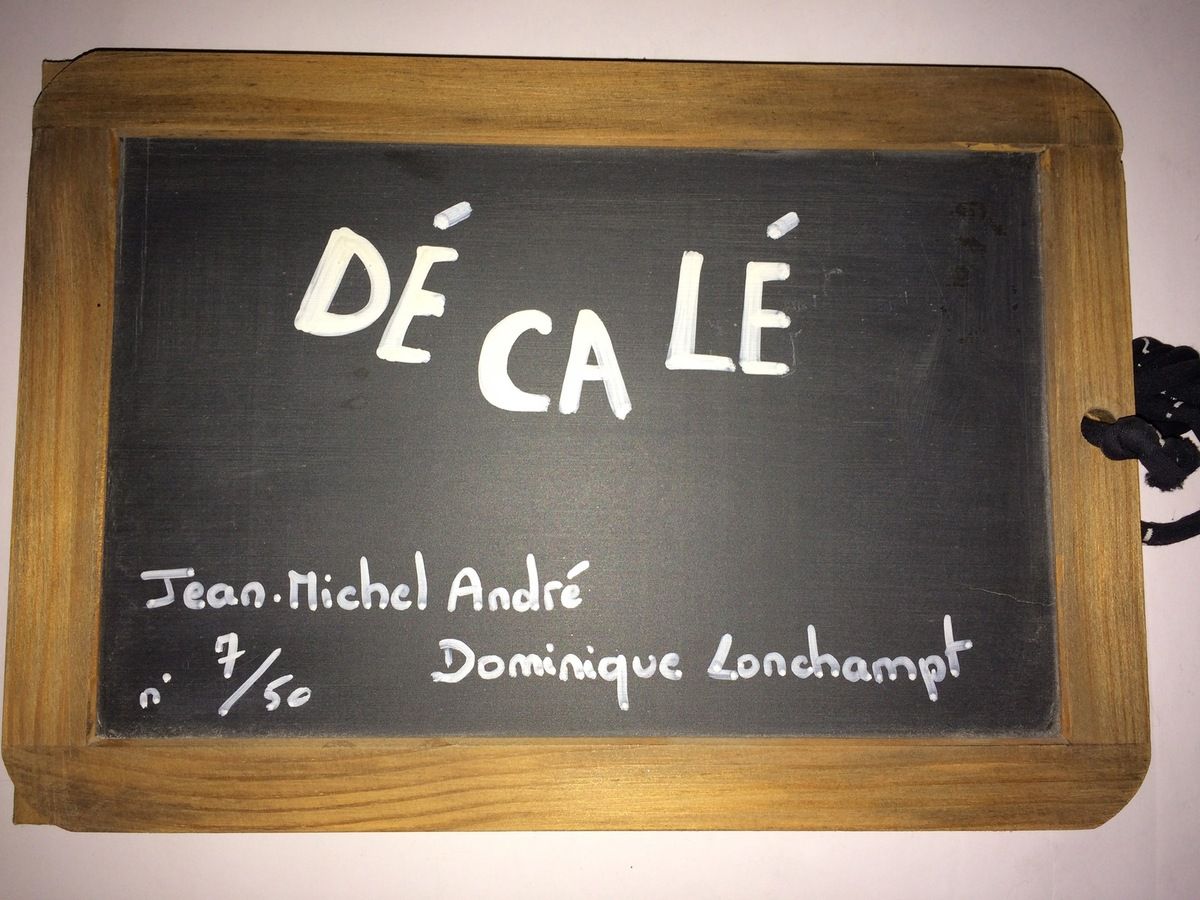 DÉCALÉ
Jean-Michel André
Dominique Lonchampt
n° 7/50